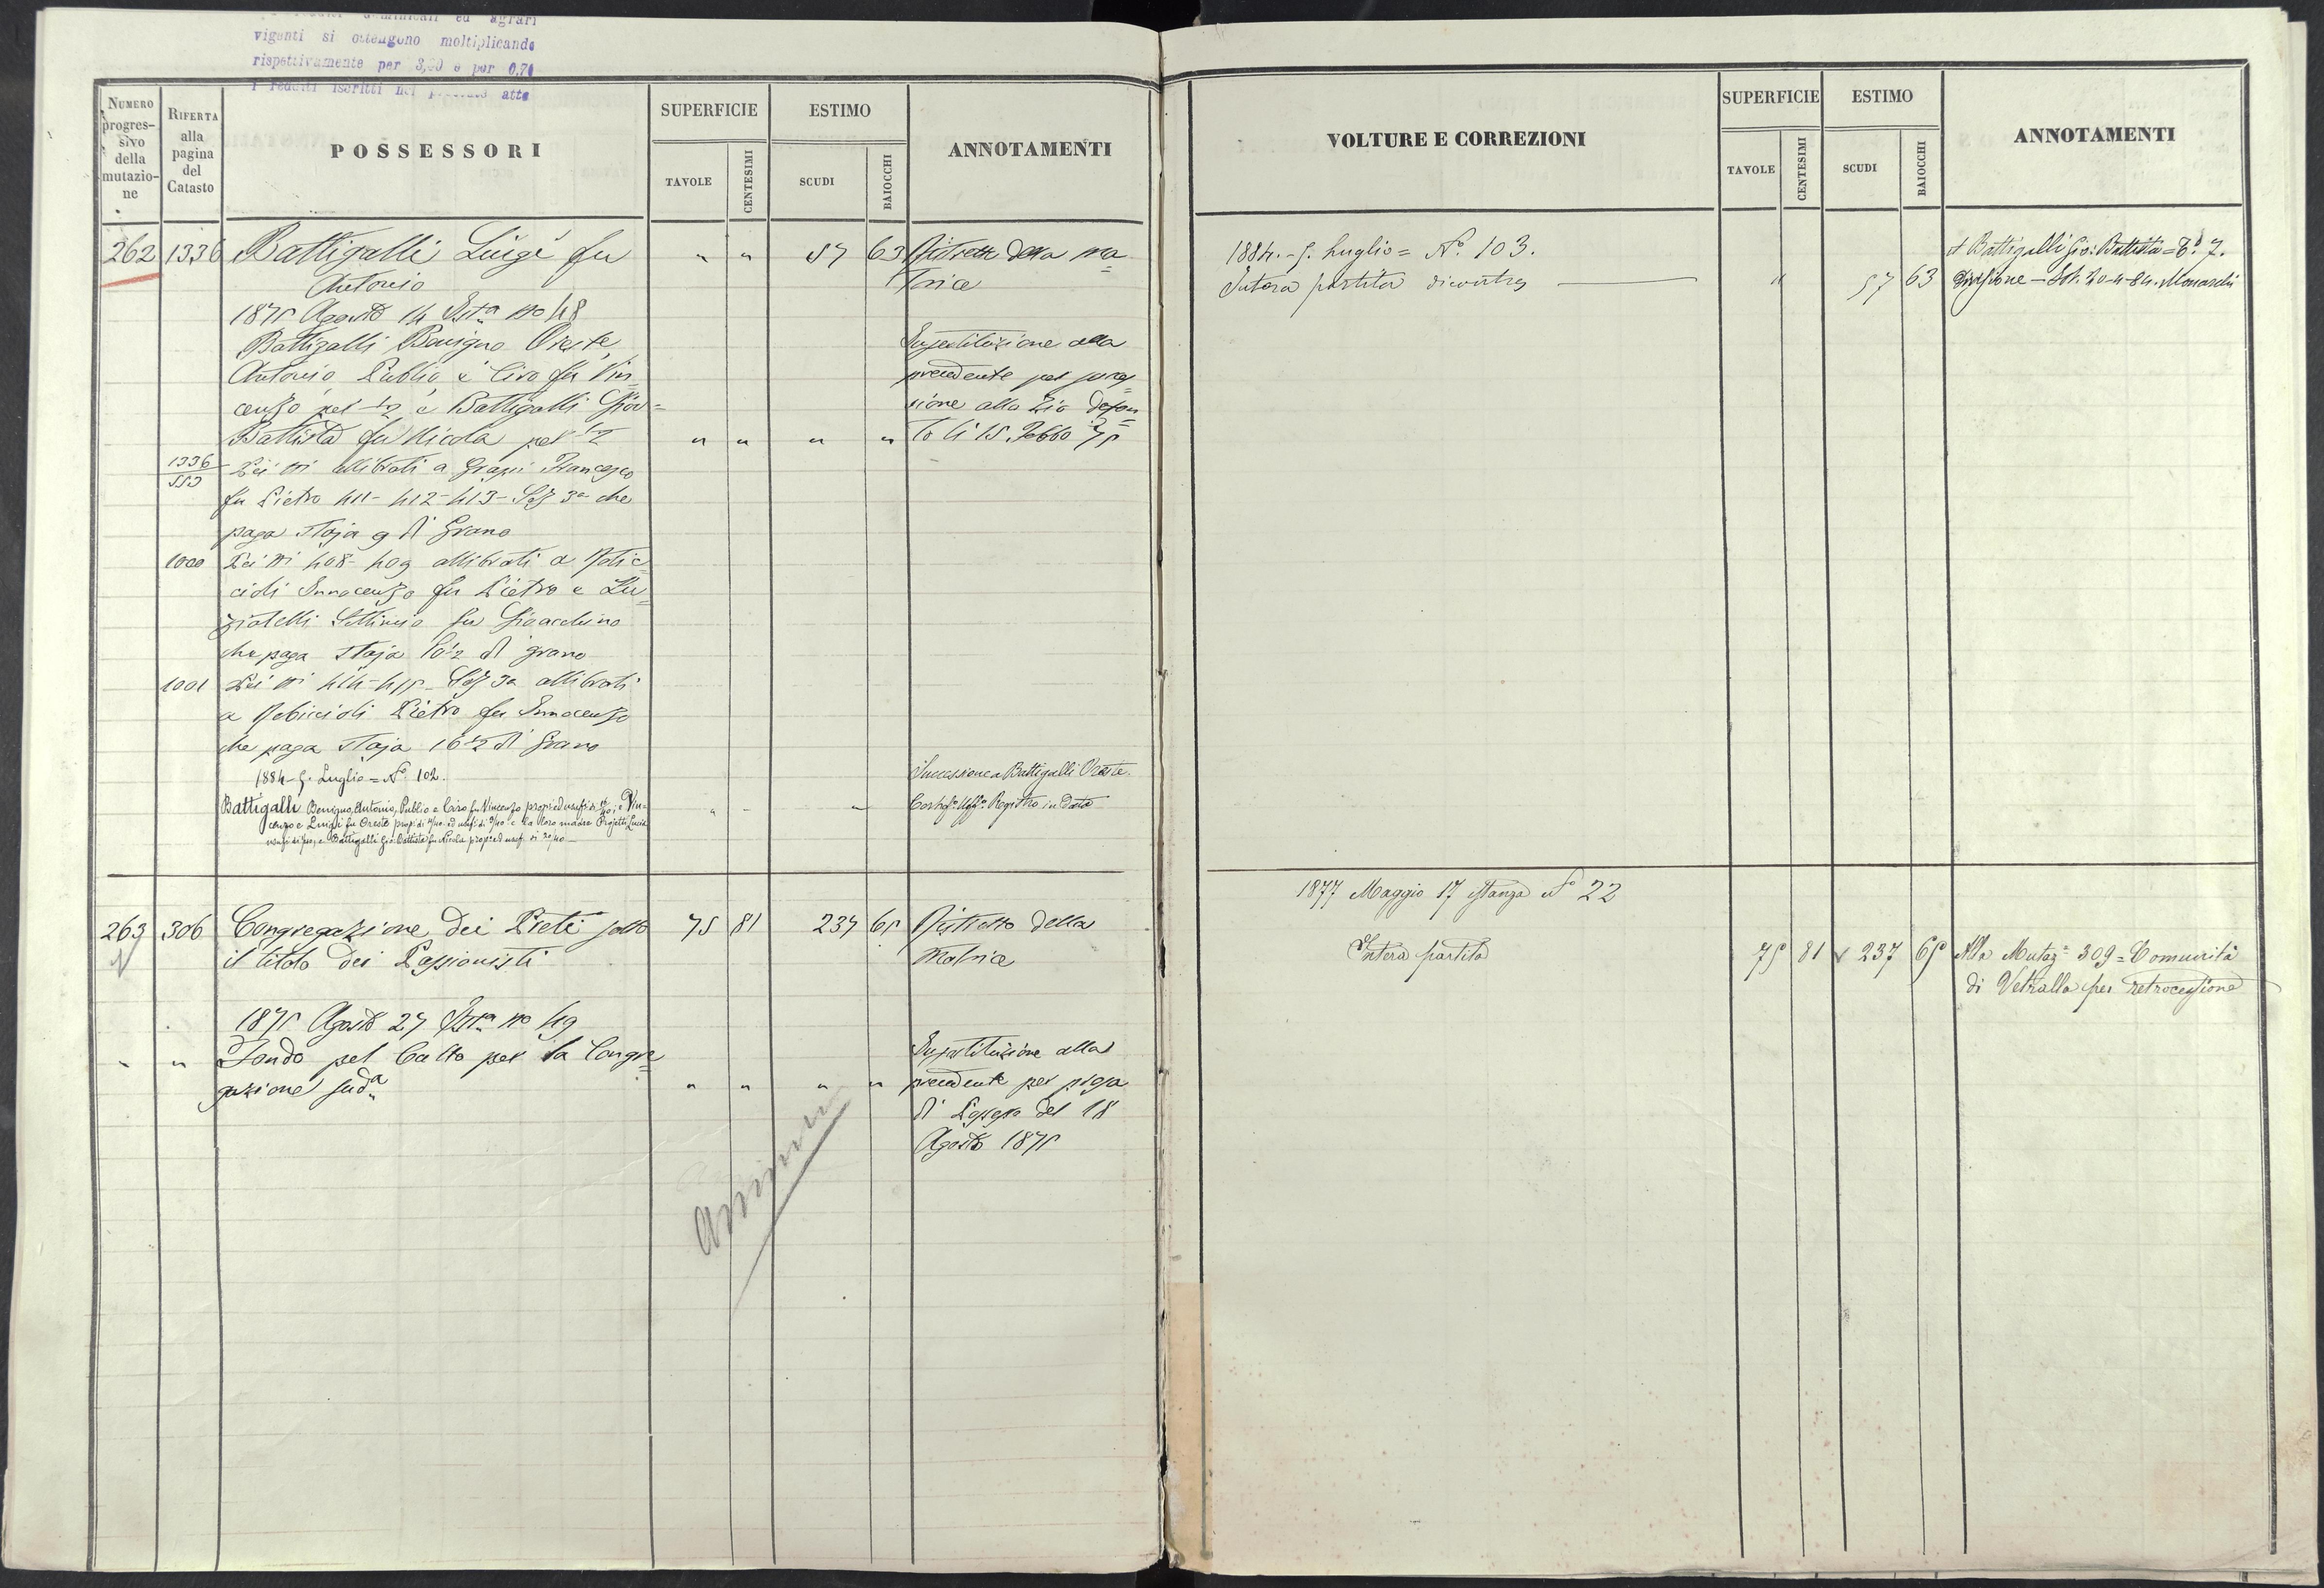 dominicali ed agrari
vigenti si ottengono moltiplicando
rispettivamente per 3,00 e per 0,70
i redditi iscritti nel presente atto
NUMERO progressivo della mutazione
RIFERTA alla pagina del Catasto
POSSESSORI
SUPERFICIE
TAVOLE
CENTESIMI
ESTIMO
SCUDI
BAIOCCHI
ANNOTAMENTI
262 1336 Battigalli Luigi fu " " 57 63 Ristretto della ma=
Antonio trice
1875 Agosto 14 Ista no 48
Battigalli Benigno Oreste Sustituzione alla
Antonio Publio e Ciro fu Vin= precedente per succes=
cenzo per 1/2 e Battigalli Giov= sione allo Zio defon=
Battista fu Nicola per 1/2 " " " " to li 15 Febb 75
1336/553 Pei ni allibrati a Grazi Francesco
fu Pietro 411-412-413- Sez 3a che
paga staja 9 di Grano
1000 Pei ni 408-409 allibrati a
cioli Innocenzo fu Pietro e Lu=
ziatelli Settimio fu Gioacchino
che paga staja 10 1/2 di grano
1001 Pei ni 414-415- Sez 3a allibrati
a Pietro fu Innocenzo
che paga staja 16 1/2 di Grano
1884-5. Luglio = No. 102. Successione a Battigalli Oreste.
Battigalli Benigno, Antonio, Publio e Ciro fu Vincenzo prop. ed usuf. di e Vin= " - - Cert. Uff. Registro in data
cenzo e Luigi fu Oreste prop. di 4/40 ed usuf. di 3/40 e la loro madre Projetti Lucia
usuf. di 1/40, e Battigalli Gio: Battista fu Nicola prop. ed usuf. di 20/40 -
263 306 Congregazione dei Preti sotto 75 81 237 65 Ristretto della
il titolo dei Passionisti Matrice
1875 Agosto 27 Ista no 49
" " Fondo pel Culto per la Congre= Sustituzione alla
gazione suda " " " " precedente per presa
di Possesso del 18
Agosto 1875
VOLTURE E CORREZIONI
SUPERFICIE
TAVOLE
CENTESIMI
ESTIMO
SCUDI
BAIOCCHI
ANNOTAMENTI
1884.- 5. Luglio = No. 103. A Battigalli Gio: Battista = To. 7.
Intera partita dicontro " 57 63 divisione - Ist. 20-4-84. Monarchi
1877 Maggio 17 Istanza No 22
Intera partita 75 81 237 65 Alla Mutaz= 309 = Comunità
di Vetralla per retrocessione